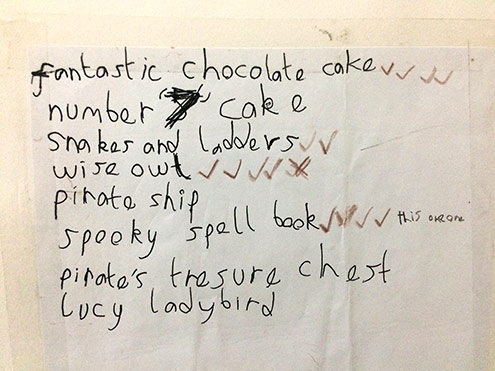 fantastic chocolate cake ✓✓✓✓
number "7" cake
snakes and ladders ✓✓
wise owl ✓✓✓✓
pirate ship
spooky spell book ✓✓✓✓ this
pirate's tresure chest
lucy ladybird